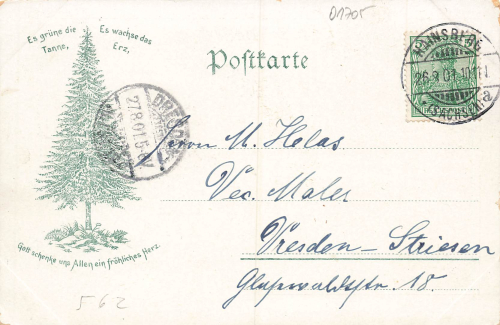 D1705
Es grüne die Tanne,
Es wachse das Erz,
Gott schenke uns Allen ein fröhliches Herz.
Postkarte
HAINSBERG
26.8.01.10-11V
(SACHSEN) a
DRESDEN
27.8.01.5-6V
Herrn M. Helas
Dec. Maler
Dresden-Striesen
Glashwaldtstr. 18.
562